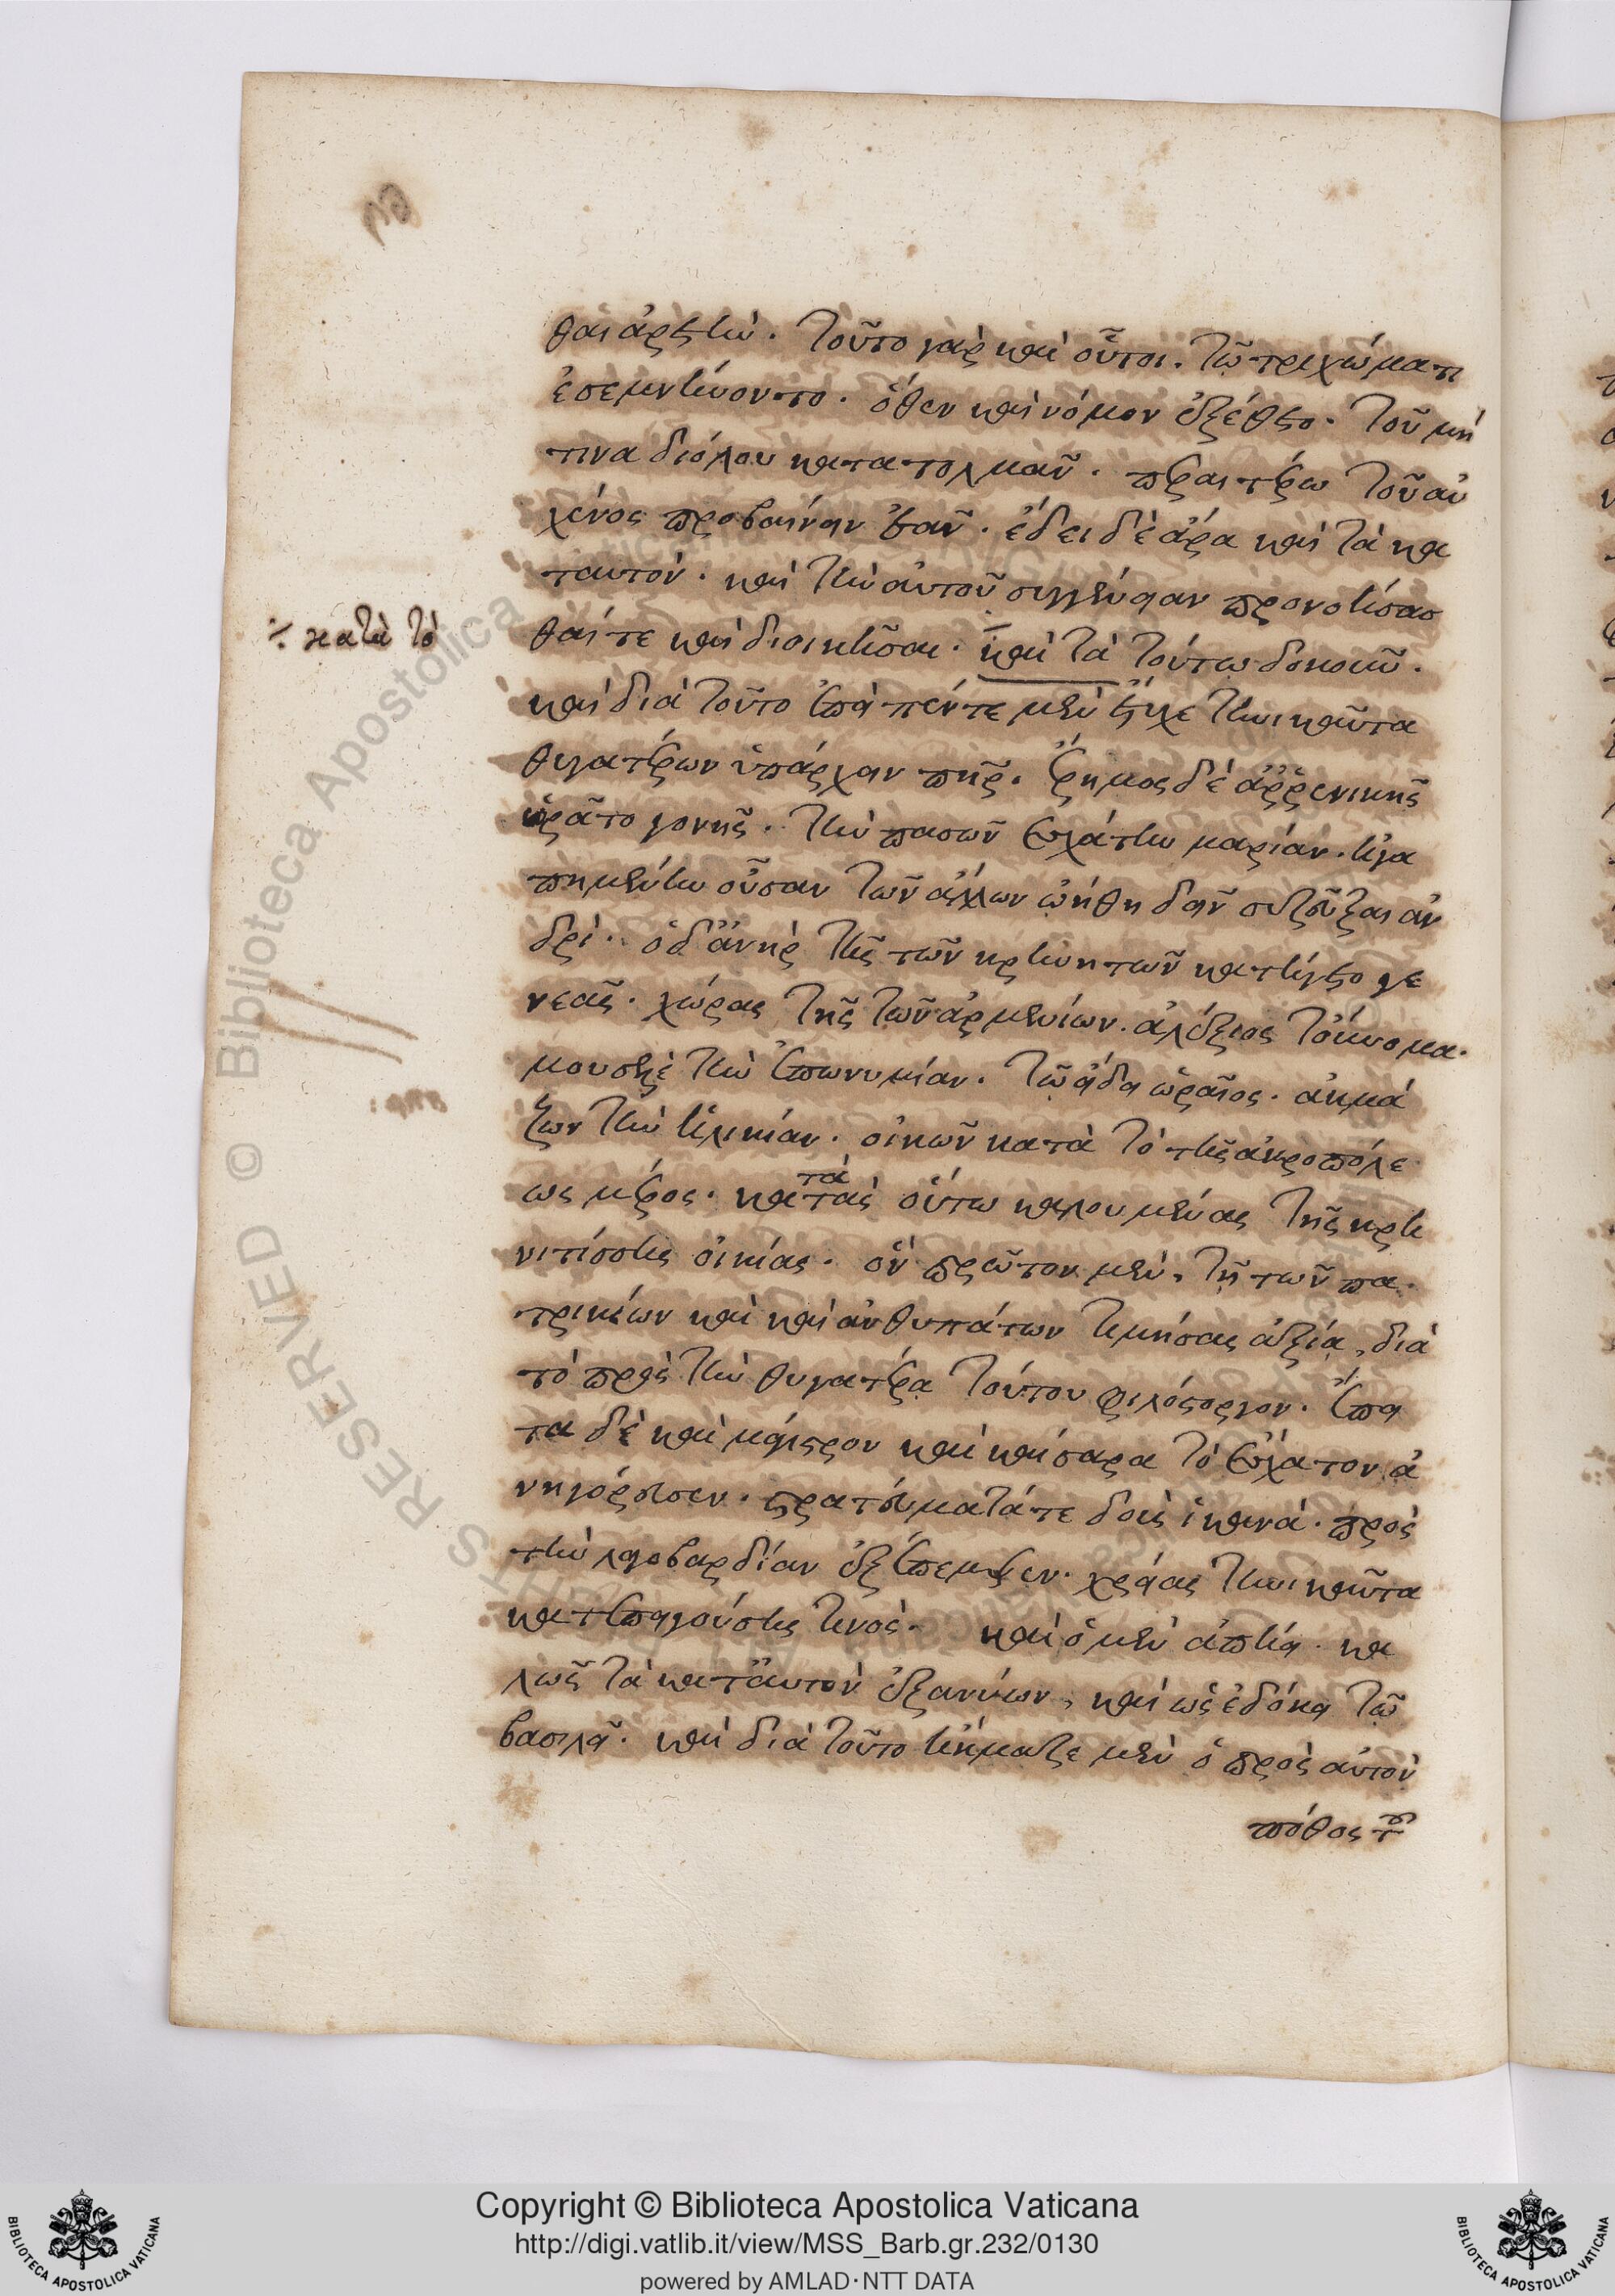 θαι ἀρετὴν. τοῦτο γὰρ καὶ οὗτοι. τῶ τριχώματι
ἐσεμνύνοντο. ὅθεν καὶ νόμον ἐξέθετο. τοῦ μή
τινα διόλου κατατολμᾶν. περαιτέρω τοῦ αὐ
χένος προβαίνειν ἐᾶν. ἔδει δὲ ἄρα καὶ τὰ κα
ταυτὸν. καὶ τὴν αὐτοῦ συγγένειαν προνοήσασ
θαί τε καὶ διοικῆσαι. καὶ τὰ τούτω δοκοῦν.
⁒ κατὰ τὸ
καὶ διὰ τοῦτο ἐπεὶ πέντε μὲν ἔτυχε τηνικαῦτα
θυγατέρων ὑπάρχειν πηρ. ἔρημος δὲ ἀῤῥενικῆς
ὡρᾶτο γονῆς. τὴν πασῶν ἐσχάτην μαρίαν. ἠγα
πημένην οὖσαν τῶν ἄλλων ὠήθη δεῖν συζεῦξαι ἀν
δρί. ὁ δ' ἀνὴρ τῆς τῶν κρηνητῶν κατήγετο γε
νεᾶς. χώρας τῆς τῶν ἀρμενίων. ἀλέξιος τοὔνομα.
μουσελὲ τὴν ἐπωνυμίαν. τῶ εἴδει ὡραῖος. ἀκμά
ζων τὴν ἡλικίαν. οἰκῶν κατὰ τὸ τῆς ἀκροπόλε
ως μέρος. κατὰ τὰς οὕτω καλουμένας τῆς κρη
νιτίσσης οἰκίας. ὃν πρῶτον μὲν, τῆ τῶν πα
τρικίων καὶ καὶ ἀνθυπάτων τιμήσας ἀξία, διὰ
τὸ πρὸς τὴν θυγατέρα τούτου φιλόστοργον. ἔπει
τα δὲ καὶ μάγιστρον καὶ καίσαρα τὸ ἔσχατον ἀ
νηγόρευσεν. στρατεύματά τε δοὺς ἱκανά. πρὸς
τὴν λογοβαρδίαν ἐξέπεμψεν. χρείας τηνικαῦτα
κατεπειγούσης τινὸς. καὶ ὁ μὲν ἀπήει. κα
λῶς τὰ κατ' αὐτὸν ἐξανύων, καὶ ὡς ἐδόκει τῶ
βασιλεῖ. καὶ διὰ τοῦτο ἤκμαζε μὲν ὁ πρὸς αὐτὸν
πόθος τοῦ
Biblioteca Apostolica
Copyright © Biblioteca Apostolica Vaticana
http://digi.vatlib.it/view/MSS_Barb.gr.232/0130
powered by AMLAD·NTT DATA
BIBLIOTECA APOSTOLICA VATICANA
BIBLIOTECA APOSTOLICA VATICANA